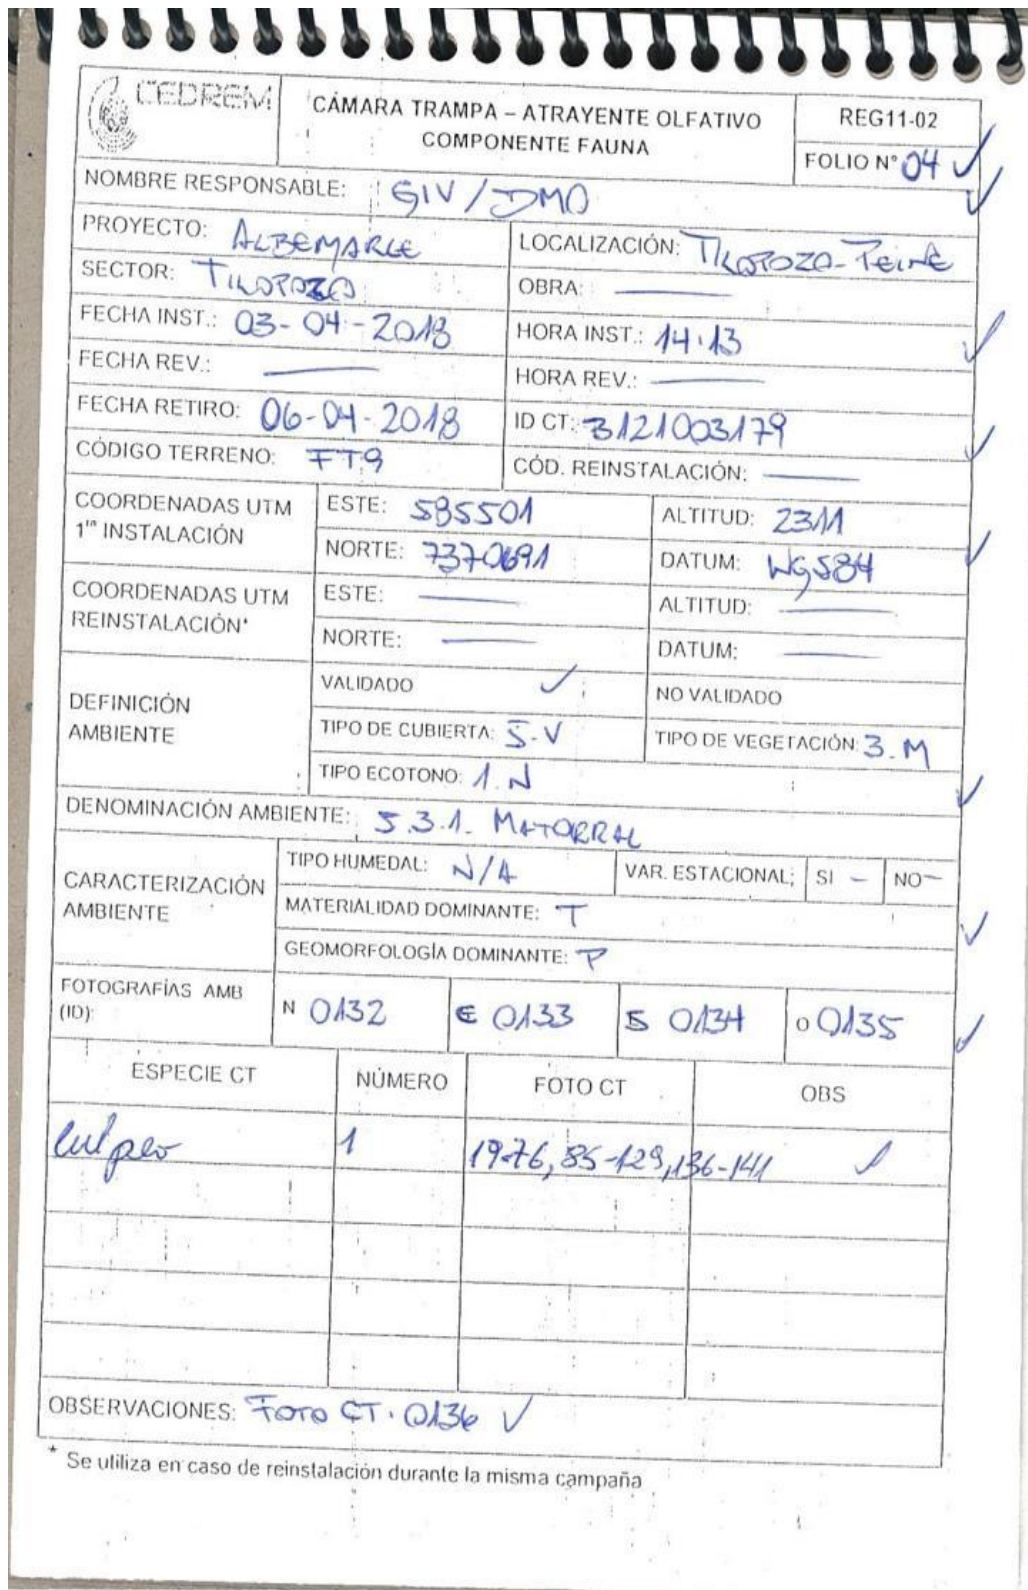 CEDREM
CÁMARA TRAMPA – ATRAYENTE OLFATIVO
COMPONENTE FAUNA
REG11-02
FOLIO N° 04 ✓
NOMBRE RESPONSABLE: GIV/DMO
PROYECTO: ALBEMARLE
LOCALIZACIÓN: TILOPOZO-PEINE
SECTOR: TILOPOZO
OBRA: —
FECHA INST.: 03-04-2018
HORA INST.: 14:13
FECHA REV.: —
HORA REV.: —
FECHA RETIRO: 06-04-2018
ID CT: 3121003179
CÓDIGO TERRENO: FT9
CÓD. REINSTALACIÓN: —
COORDENADAS UTM
1ra INSTALACIÓN
ESTE: 585501
ALTITUD: 2311
NORTE: 7370691
DATUM: WGS84
COORDENADAS UTM
REINSTALACIÓN*
ESTE: —
ALTITUD: —
NORTE: —
DATUM: —
DEFINICIÓN
AMBIENTE
VALIDADO ✓
NO VALIDADO
TIPO DE CUBIERTA: 5-V
TIPO DE VEGETACIÓN: 3.M
TIPO ECOTONO: 1.N
DENOMINACIÓN AMBIENTE: 5.3.1. MATORRAL
CARACTERIZACIÓN
AMBIENTE
TIPO HUMEDAL: N/A
VAR. ESTACIONAL: SI – NO –
MATERIALIDAD DOMINANTE: T
GEOMORFOLOGÍA DOMINANTE: P
FOTOGRAFÍAS AMB
(ID):
N 0132
E 0133
S 0134
O 0135
ESPECIE CT NÚMERO FOTO CT OBS
Culpeo 1 19-76, 85-129, 136-141
OBSERVACIONES: FOTO CT. 0136 ✓
* Se utiliza en caso de reinstalación durante la misma campaña